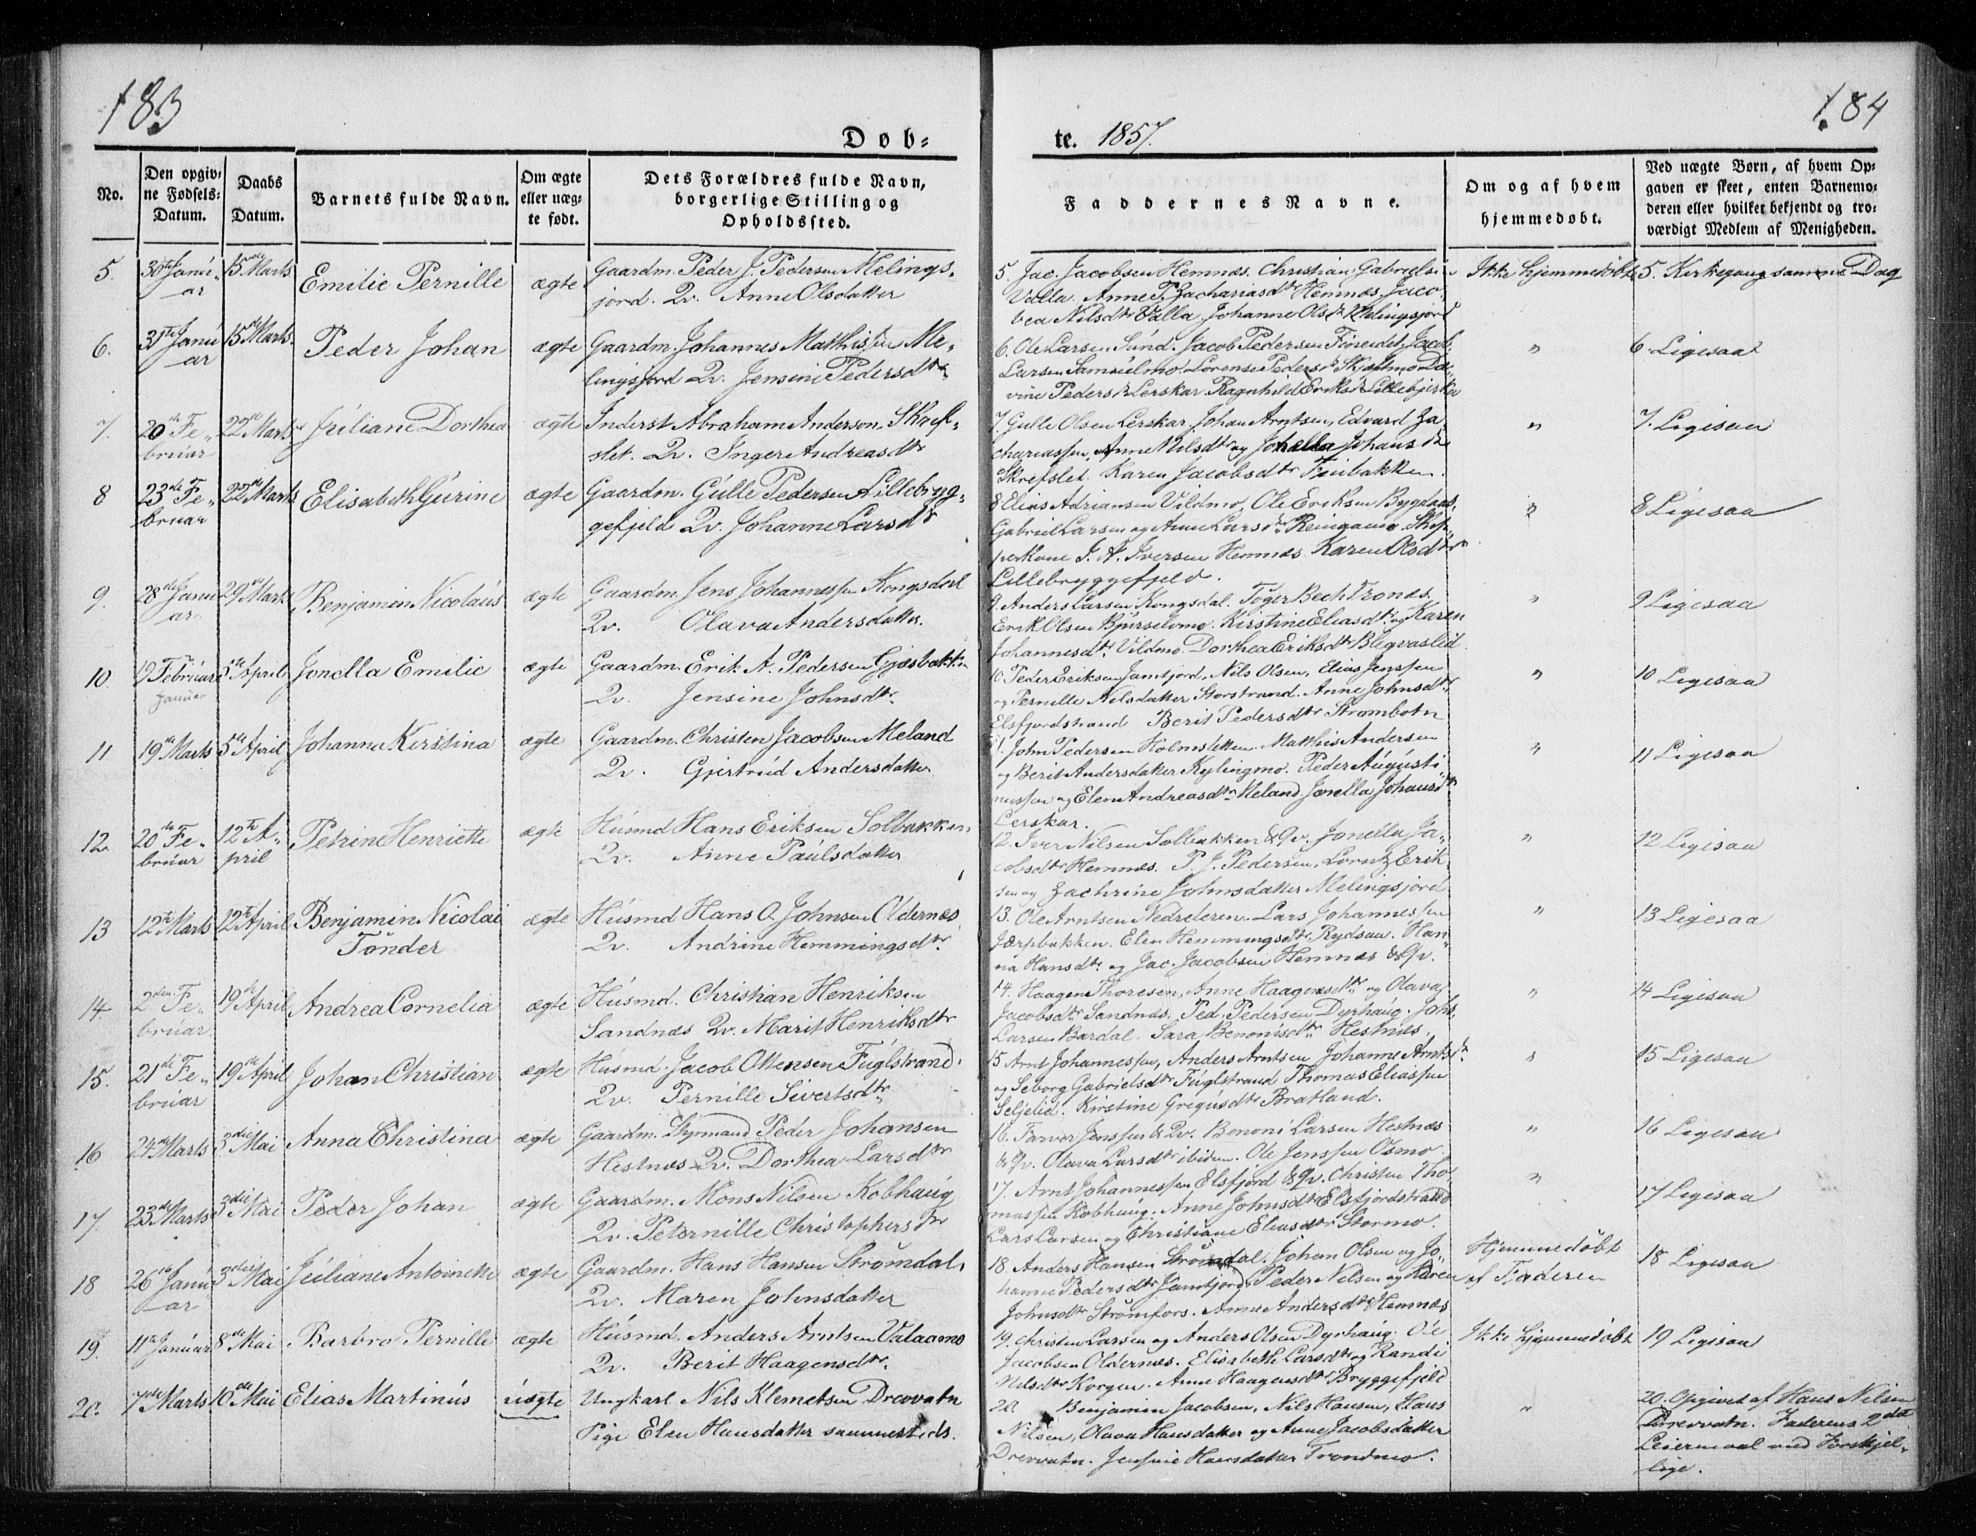 183
184
Døb-
te. 1857.
No.
Den opgiv-
ne Fødsels-
Datum.
Daabs
Datum.
Barnets fulde Navn.
Om ægte
eller uæg-
te født.
Dets Forældres fulde Navn,
borgerlige Stilling og
Opholdssted.
Faddernes Navne.
Om og af hvem
hjemmedøbt.
Ved uægte Børn, af hvem Op-
gaven er skeet, enten Barnemo-
deren eller hvilket bekjendt og tro-
værdigt Medlem af Menigheden.
5. 30te Janu-
ar
15de Marts
Emilie Pernille
ægte
Gaardm. Peder J. Pedersen Melings-
fjord. Qv. Anne Olsdatter
5. Jac. Jacobsen Hemnæs. Christian Gabrielsen
Valla. Anne P. Zachariasdtr Hemnæs. Jaco-
bea Nilsdtr Valla Johanne Olsdtr Melingsfjord
Ikke hjemmedøbt
5. Kirkegang samme Dag
6. 31te Janu-
ar
15de Marts
Peder Johan
ægte
Gaardm. Johannes Matthissen Me-
lingsfjord Qv. Jensine Pedersdtr
6. Ole Larsen Sund. Jacob Pedersen Fineidet, Jacob
Larsen Samuelmo Lorense Pedersdtr
vine Pedersdtr Lerskar Ragnhild Eriksdtr
"
6 Ligesaa
7. 20de Fe-
bruar
22de Marts
Juliane Dorthea
ægte
Inderst Abraham Anderson Skref-
slet. Qv. Inger Andreasdtr
7. Gulle Olsen Lerskar Johan Arntsen, Edvard Za-
chariassen, Anne Nilsdtr og Jonella Johansdtr
Skrefslet. Karen Jacobsdtr
"
7. Ligesaa
8 23de Fe-
bruar
22de Marts
Elisabeth Gurine
ægte
Gaardm. Gulle Pedersen Lillebryg-
gefjeld Qv. Johanne Larsdtr
8 Elias Adriansen Vildmo, Ole Eriksen Bygdaas,
Gabriel Larsen og Anne Larsdtr Skip-
perkone J. A. Iversen Hemnæs Karen Olsdtr
Lillebryggefjeld.
"
8 Ligesaa
9. 28de Janu-
ar
29de Marts
Benjamin Nicolaus
ægte
Gaardm. Jens Johannessen Kongsdal
Qv. Olava Andersdatter
9. Anders Larsen Kongsdal. Tøger Bech Tronæs.
Erik Olsen Bjurselvmo. Kirstine Eliasdtr og Karen
Johannesdtr Vildmo. Dorthea Eriksdtr
"
9 Ligesaa
10. 19 Februar
Januar
5te April
Jonella Emilie
ægte
Gaardm. Erik A. Pedersen Gjæsbakken
Qv. Jensine Johnsdtr
10 Peder Eriksen Jamtjord, Nils Olsen, Elias Jenssen
og Pernille Nilsdatter Storstrand. Anne Johnsdtr
Elsfjordstrand Berit Pedersdtr Strømbotn
"
10 Ligesaa
11 19de Marts
5te April
Johanna Kirstina
ægte
Gaardm. Christen Jacobsen Meland
Qv. Gjertrud Andersdatter
11. John Pedersen Holmsletten. Matthis Andersen
og Berit Andersdatter Kjølingmo. Peder Augusti-
nussen og Elen Andreasdtr Meland Jonella Johansdtr
Lerskar.
"
11 Ligesaa
12. 20de Fe-
bruar
12te A-
pril
Petrine Henriette
ægte
Husmd Hans Eriksen Solbakken
Qv. Anne Paulsdatter
12. Iver Nilsen Solbakken & Qv. Jonella Ja-
cobsdtr Hemnæs. P. J. Pedersen, Lorntz Erik-
sen og Zachrine Johnsdatter Melingsfjord
"
12 Ligesaa
13 12te Marts
12te April
Benjamin Nicolai
Tønder
ægte
Husmd Hans O. Johnsen Oldernæs
Qv. Andrine Hemmingsdtr
13. Ole Arntsen Nedreleren. Lars Johannessen
Jærpbakken. Elen Hemmingsdtr Rydsaa. Han-
na Hansdtr og Jac. Jacobsen Hemnæs & Qv.
"
13 Ligesaa
14 2den Fe-
bruar
19de April
Andrea Cornelia
ægte
Husmd. Christian Henriksen
Sandnæs Qv. Marit Henriksdtr
14. Haagen Thoresen, Anne Haagensdtr og Olava
Jacobsdtr Sandnæs. Ped. Pedersen Dyrhaug. Johs
Larsen Bardal. Sara Benonisdtr Hestnæs.
"
14 Ligesaa
15. 21de Fe-
bruar
19de April
Johan Christian
ægte
Husmd. Jacob Ottensen Fuglstrand.
Qv. Pernille Sivertsdtr
15 Arnt Johannessen, Anders Arntsen, Johanne Arntsdtr
og Seborg Gabrielsdtr Fuglstrand Thomas Eliassen
Seljelid. Kirstine Gregusdtr Bratland.
"
15 Ligesaa
16 24de Marts
3die Mai
Anna Christina
ægte
Gaardm. Peder Johansen
Hestnæs Qv. Dorthea Larsdtr
16. Tarver Jenssen & Qv. Benoni Larsen Hestnæs
& Qv. Olava Larsdtr ibidem. Ole Jenssen Osmo
"
16 Ligesaa
17. 23de Marts
3die Mai
Peder Johan
ægte
Gaardm. Mons Nilsen Kobhaug
Qv. Peternille Christophersdtr
17. Arnt Johannessen Elsfjord & Qv. Christen Tho-
massen Kobhaug. Anne Johnsdtr Elsfjordstrand
Lars Larsen og Christiane Eliasdtr Stormo.
"
17 Ligesaa
18 26de Janu-
ar
3die Mai
Juliane Antoinette
ægte
Gaardm. Hans Hansen Strømdal.
Qv. Maren Johnsdatter
18. Anders Hansen Strømdal, Johan Olsen og Jo-
hanne Pedersdtr Jamtjord, Peder Nilsen og Karen
Johnsdtr Strømfors. Anne Andersdtr Hemnæs
Hjemmedøbt
af Faderen
18 Ligesaa
19. 11te Januar
8de Mai
Barbro Pernille
ægte
Husmd. Anders Arntsen Valaamo
Qv. Berit Haagensdtr
19. Christen Larsen og Anders Olsen Dyrhaug. Ole
Jacobsen Oldernæs. Elisabeth Larsdtr og Randi
Nilsdtr Korgen. Anne Haagensdtr Bryggefjeld
Ikke hjemmedøbt
19 Ligesaa
20. 7de Marts
10de Mai
Elias Martinus
uægte
Ungkarl Nils Klemetsen Drevvatn
Pige Elen Hansdatter sammesteds.
20 Benjamin Jacobsen, Nils Hansen, Hans
Nilsen, Olava Hansdatter og Anne Jacobsdatter
Drevvatn. Jensine Hansdatter Trondmo.
"
20. Opgivet af Hans Nilsen
Drevvatn. Faderens 2det
Leiermaal med Forskjel-
lige.